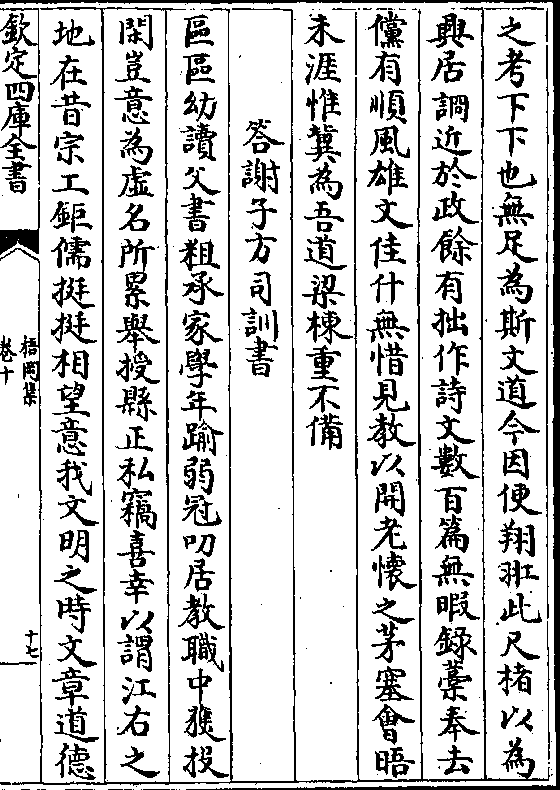 之考下下也無足為斯文道今因便翔𩀱此尺楮以為
興居調近於政餘有拙作詩文數百篇無暇録藁奉去
儻有順風雄文佳什無惜見教以開老懷之茅塞會晤
未涯惟冀為吾道梁棟重不備
答謝子方司訓書
區區幼讀父書粗承家學年踰弱冠叨居教職中獲投
閑豈意為虚名所累舉授縣正私竊喜幸以謂江右之
地在昔宗工鉅儒挺挺相望意我文明之時文章道德
欽定四庫全書
梧岡集
卷十
十七